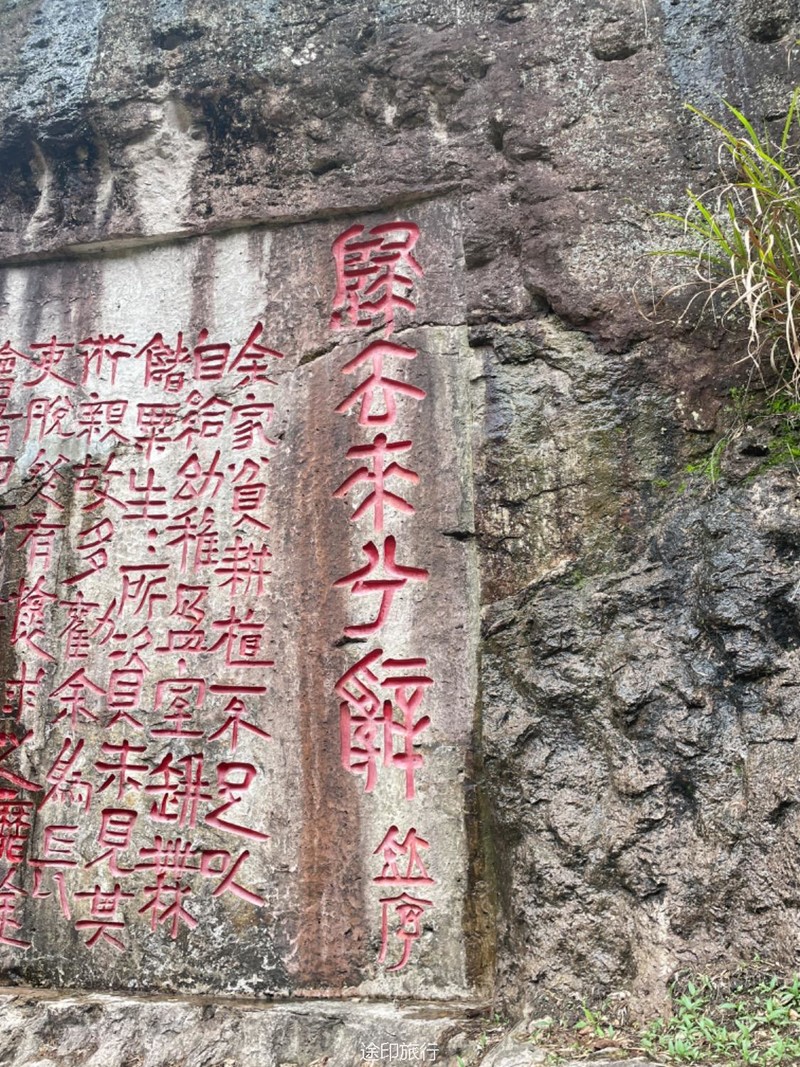 歸去來兮辭 竝序
余家貧耕植不足以
自給幼稚盈室缾無
儲粟生〻所資未見其
術親故多勸余為長
吏脫然有懷求之靡途
會有四
途印旅行